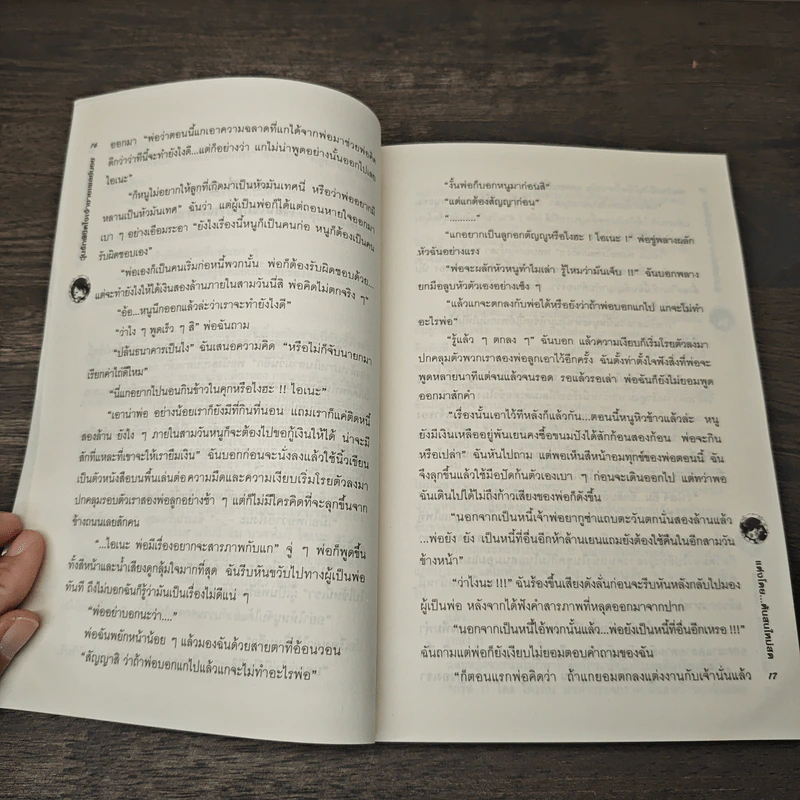 ออกมา "พ่อว่าตอนนี้แกเอาความฉลาดที่แกได้จากพ่อมาช่วยพ่อคิด
ดีกว่าว่าทีนี้จะทำยังไงดี...แต่ก็อย่างว่า แกไม่น่าพูดอย่างนั้นออกไปเลย
ไอเนะ"
"ก็หนูไม่อยากให้ลูกที่เกิดมาเป็นหัวมันเทศนี่ หรือว่าพ่ออยากมี
หลานเป็นหัวมันเทศ" ฉันว่า แต่ผู้เป็นพ่อก็ได้แต่ถอนหายใจออกมา
เบา ๆ อย่างเอือมระอา "ยังไงเรื่องนี้หนูก็เป็นคนก่อ หนูก็ต้องเป็นคน
รับผิดชอบเอง"
"พ่อเองก็เป็นคนเริ่มก่อหนี้พวกนั้น พ่อก็ต้องรับผิดชอบด้วย...
แต่จะทำยังไงให้ได้เงินสองล้านภายในสามวันนี้สิ พ่อคิดไม่ตกจริง ๆ"
"อ้อ...หนูนึกออกแล้วล่ะว่าเราจะทำยังไงดี"
"ว่าไง ๆ พูดเร็ว ๆ สิ" พ่อฉันถาม
"ปล้นธนาคารเป็นไง" ฉันเสนอความคิด "หรือไม่ก็จับนายกมา
เรียกค่าไถ่ดีไหม"
"นี่แกอยากไปนอนกินข้าวในคุกหรือไงฮะ !! ไอเนะ"
"เอาน่าพ่อ อย่างน้อยเราก็ยังมีที่กินที่นอน แถมเราก็แค่ติดหนี้
สองล้าน ยังไง ๆ ภายในสามวันหนูก็จะต้องไปขอกู้เงินให้ได้ น่าจะมี
สักที่แหละที่เขาจะให้เรายืมเงิน" ฉันบอกก่อนจะนั่งลงแล้วใช้นิ้วเขียน
เป็นตัวหนังสือบนพื้นเล่นต่อความมืดและความเงียบเริ่มโรยตัวลงมา
ปกคลุมรอบตัวเราสองพ่อลูกอย่างช้า ๆ แต่ก็ไม่มีใครคิดที่จะลุกขึ้นจาก
ข้างถนนเลยสักคน
"...ไอเนะ พ่อมีเรื่องอยากจะสารภาพกับแก" จู่ ๆ พ่อก็พูดขึ้น
ทั้งสีหน้าและน้ำเสียงดูกลุ้มใจมากที่สุด ฉันรีบหันขวับไปทางผู้เป็นพ่อ
ทันที ถึงไม่บอกฉันก็รู้ว่ามันเป็นเรื่องไม่ดีแน่ ๆ
"พ่ออย่าบอกนะว่า...."
พ่อฉันพยักหน้าน้อย ๆ แล้วมองฉันด้วยสายตาที่อ้อนวอน
"สัญญาสิ ว่าถ้าพ่อบอกแกไปแล้วแกจะไม่ทำอะไรพ่อ"
16
"งั้นพ่อก็บอกหนูมาก่อนสิ"
"แต่แกต้องสัญญาก่อน"
".........."
"แกอยากเป็นลูกอกตัญญูหรือไงฮะ ! ไอเนะ !" พ่อขู่พลางผลัก
หัวฉันอย่างแรง
"พ่อจะผลักหัวหนูทำไมเล่า รู้ไหมว่ามันเจ็บ !!" ฉันบอกพลาง
ยกมือลูบหัวตัวเองอย่างเซ็ง ๆ
"แล้วแกจะตกลงกับพ่อได้หรือยังว่าถ้าพ่อบอกแกไป แกจะไม่ทำ
อะไรพ่อ"
"รู้แล้ว ๆ ตกลง ๆ" ฉันบอก แล้วความเงียบก็เริ่มโรยตัวลงมา
ปกคลุมตัวพวกเราสองพ่อลูกเอาไว้อีกครั้ง ฉันตั้งท่าตั้งใจฟังสิ่งที่พ่อจะ
พูดหลายนาทีแต่จนแล้วจนรอด รอแล้วรอเล่า พ่อฉันก็ยังไม่ยอมพูด
ออกมาสักคำ
"เรื่องนั้นเอาไว้ทีหลังก็แล้วกัน...ตอนนี้หนูหิวข้าวแล้วล่ะ หนู
ยังมีเงินเหลืออยู่พันเยนคงซื้อขนมปังได้สักก้อนสองก้อน พ่อจะกิน
หรือเปล่า" ฉันหันไปถาม แต่พอเห็นสีหน้าอมทุกข์ของพ่อตอนนี้ ฉัน
จึงลุกขึ้นแล้วใช้มือปัดก้นตัวเองเบา ๆ ก่อนจะเดินออกไป แต่ทว่าพอ
ฉันเดินไปได้ไม่ถึงก้าวเสียงของพ่อก็ดังขึ้น
"นอกจากเป็นหนี้เจ้าพ่อยากูซ่าแถบตะวันตกนั่นสองล้านแล้ว
...พ่อยัง ยัง เป็นหนี้ที่อื่นอีกห้าล้านเยนแถมยังต้องใช้คืนในอีกสามวัน
ข้างหน้า"
"ว่าไงนะ !!!" ฉันร้องขึ้นเสียงดังลั่นก่อนจะรีบหันหลังกลับไปมอง
ผู้เป็นพ่อ หลังจากได้ฟังคำสารภาพที่หลุดออกมาจากปาก
"นอกจากเป็นหนี้ไอ้พวกนั้นแล้ว...พ่อยังเป็นหนี้ที่อื่นอีกเหรอ !!!"
ฉันถามแต่พ่อก็ยังเงียบไม่ยอมตอบคำถามของฉัน
"ก็ตอนแรกพ่อคิดว่า ถ้าแกยอมตกลงแต่งงานกับเจ้านั่นแล้ว
17